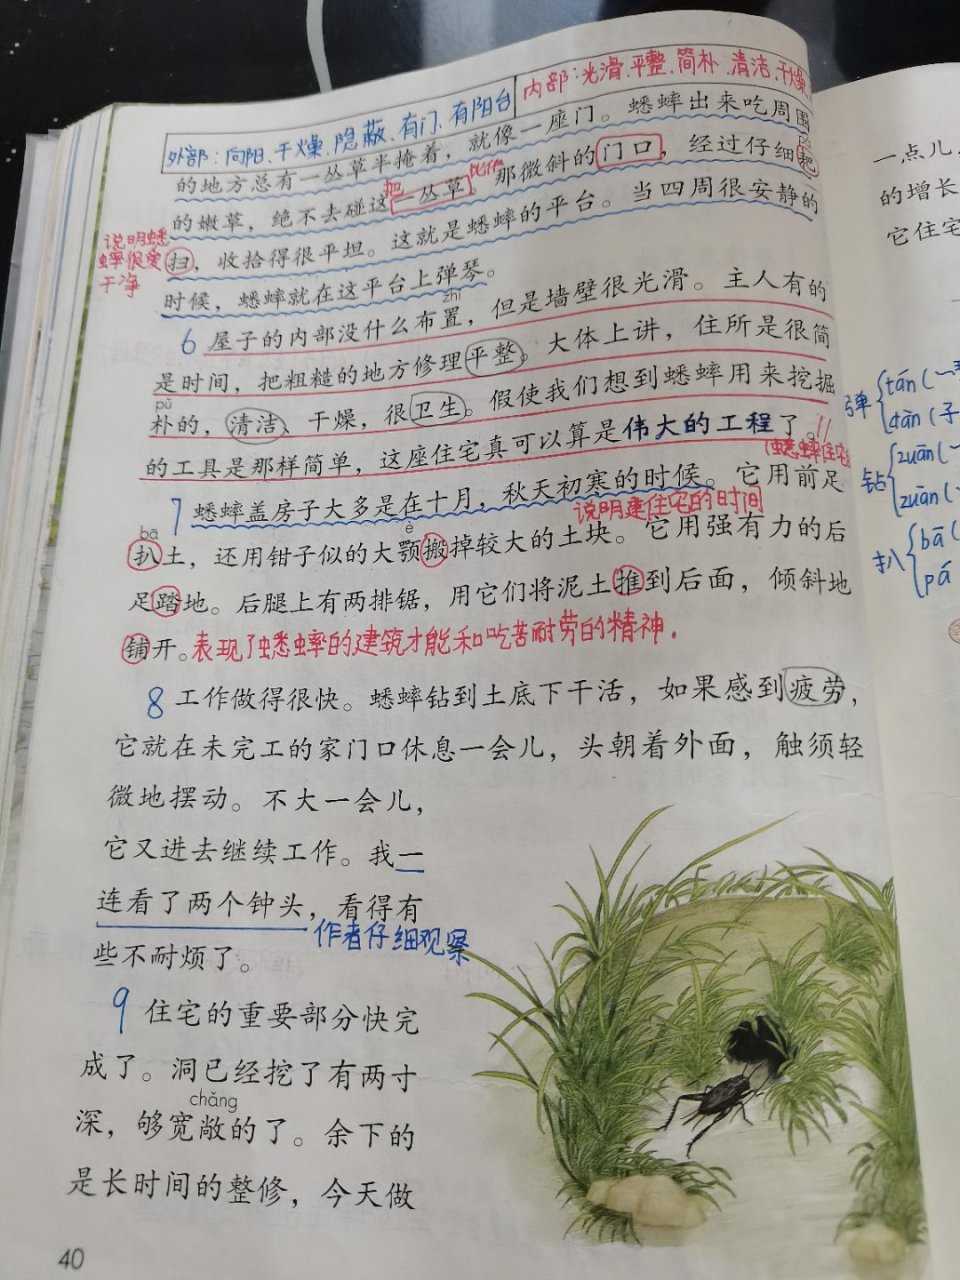 外部：向阳、干燥、隐蔽、有门、有阳台
内部：光滑、平整、简朴、清洁、干燥
的地方总有一丛草半掩着，就像一座门。蟋蟀出来吃周围
的嫩草，绝不去碰这一丛草。那微斜的门口，经过仔细耙
把
比作
说明蟋
蟀很爱
干净
扫，收拾得很平坦。这就是蟋蟀的平台。当四周很安静的
时候，蟋蟀就在这平台上弹琴。
zhì
6 屋子的内部没什么布置，但是墙壁很光滑。主人有的
是时间，把粗糙的地方修理平整。大体上讲，住所是很简
pǔ
朴的，清洁、干燥，很卫生。假使我们想到蟋蟀用来挖掘
的工具是那样简单，这座住宅真可以算是伟大的工程了。//
(蟋蟀住宅
7 蟋蟀盖房子大多是在十月，秋天初寒的时候。它用前足
说明建住宅的时间
bā
è
扒土，还用钳子似的大颚搬掉较大的土块。它用强有力的后
足踏地。后腿上有两排锯，用它们将泥土推到后面，倾斜地
铺开。表现了蟋蟀的建筑才能和吃苦耐劳的精神.
8 工作做得很快。蟋蟀钻到土底下干活，如果感到疲劳，
它就在未完工的家门口休息一会儿，头朝着外面，触须轻
微地摆动。不大一会儿，
它又进去继续工作。我一
连看了两个钟头，看得有
作者仔细观察
些不耐烦了。
9 住宅的重要部分快完
成了。洞已经挖了有两寸
chǎng
深，够宽敞的了。余下的
是长时间的整修，今天做
40
一点儿
的增长
它住宅
弹
tán(一
dàn(子
钻
zuān(
zuàn(
扒
bā(
pá